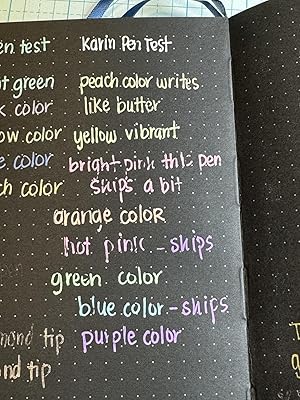 en test Karin Pen Test
t green peach color writes
k color like butter
ow color yellow vibrant
e color bright pink this pen
ch color skips a bit
orange color
hot pink - skips
green color
blue color - skips
mond tip purple color
ond tip